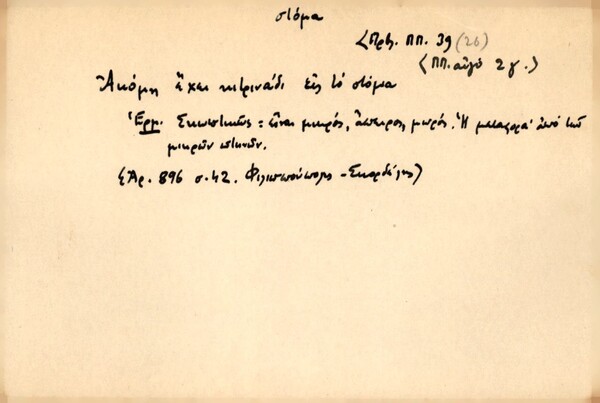 στόμα
<Πρβ. ΠΠ. 39 (26)
<ΠΠ. αὐγό 2γ.>
Ἀκόμη ἔχει κιτρινάδι εἰς τὸ στόμα
Ἑρμ. Σκωπτικῶς = εἶναι μικρός, ἄπειρος, μωρός. Ἡ μεταφορὰ ἀπὸ τῶν
μικρῶν πτηνῶν.
(Ἀρ. 896 σ. 42. Φιλιππούπολις - Σκορδέλης)